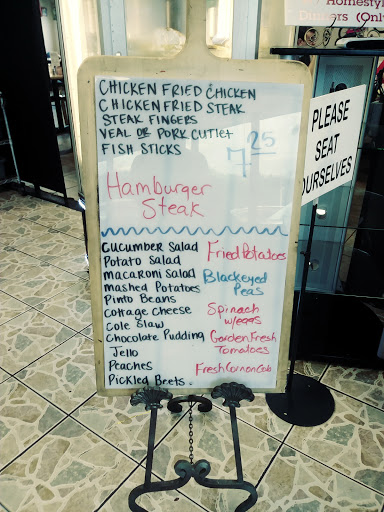 Homestyle
Dinners (Only
CHICKEN FRIED CHICKEN
CHICKEN FRIED STEAK
STEAK FINGERS
VEAL OR PORK CUTLET
FISH STICKS
7 25
Hamburger
Steak
PLEASE
SEAT
OURSELVES
Cucumber Salad
Potato Salad
macaroni Salad
mashed Potatoes
Pinto Beans
Cottage Cheese
Cole Slaw
Chocolate Pudding
Jello
Peaches
Pickled Beets
Fried Potatoes
Blackeyed
Peas
Spinach
w/eggs
Garden Fresh
Tomatoes
Fresh Corn on Cob